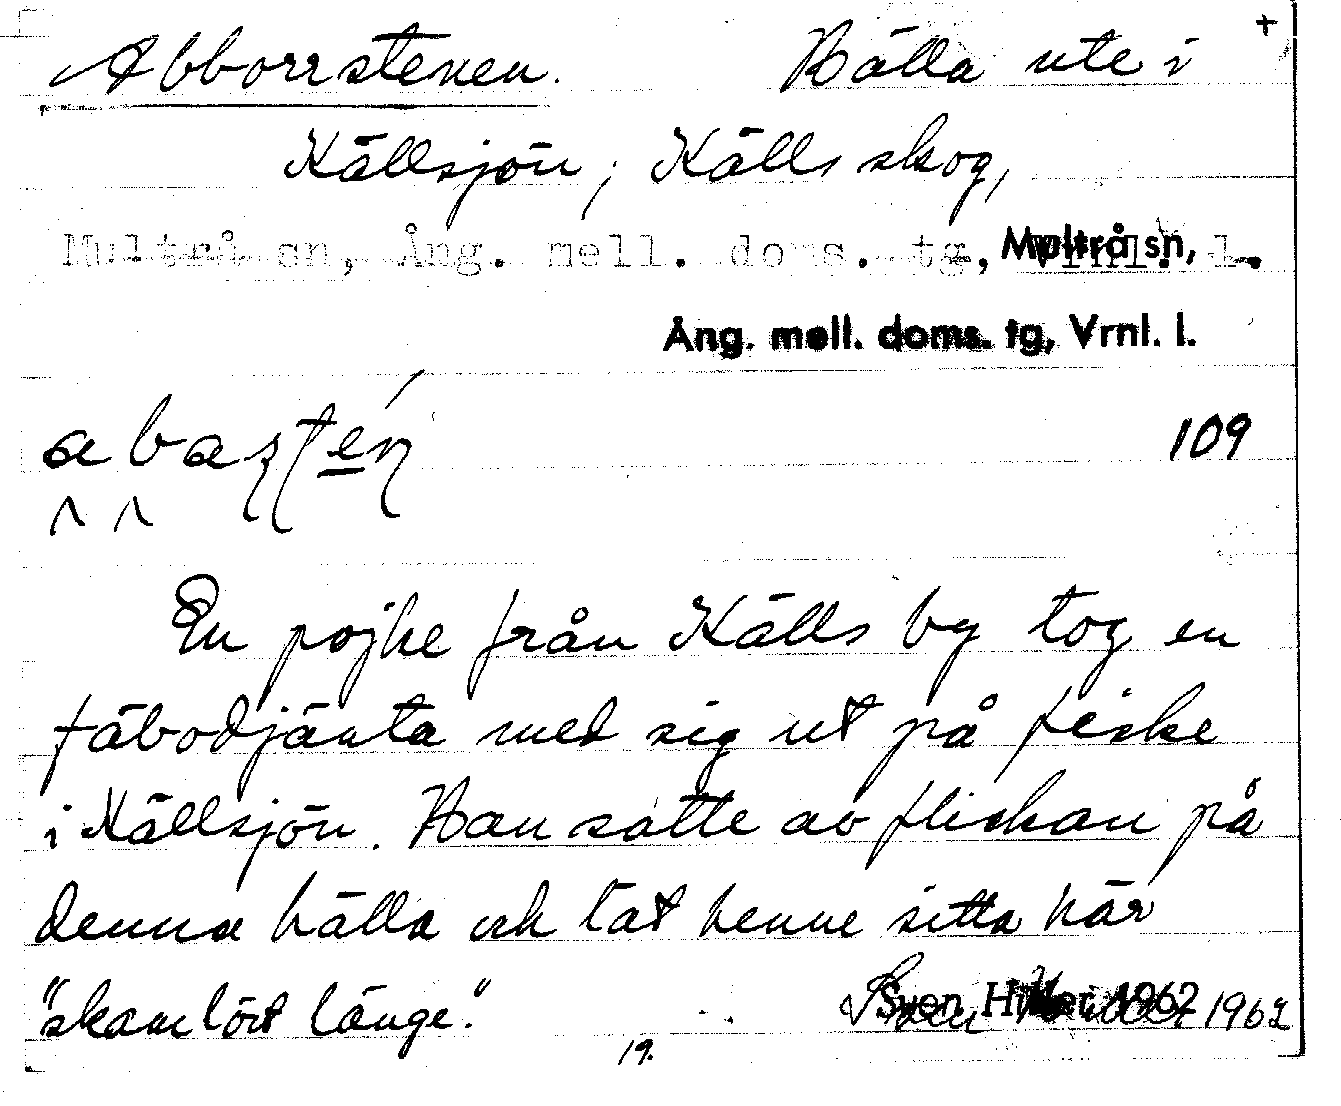 Abborrstenen. Hälla ute i +
Källsjön, Källs skog,
Multrå sn, Ång. mell. doms. tg, Vrnl. l.
Multrå sn,
Ång. mell. doms. tg, Vrnl. l.
109
En pojke från Källs by tog en
fäbodjänta med sig ut på fiske
i Källsjön. Han satte av flickan på
denna hälla och lät henne sitta här
"skamlöst länge."
Sven Hiller 1962
19.